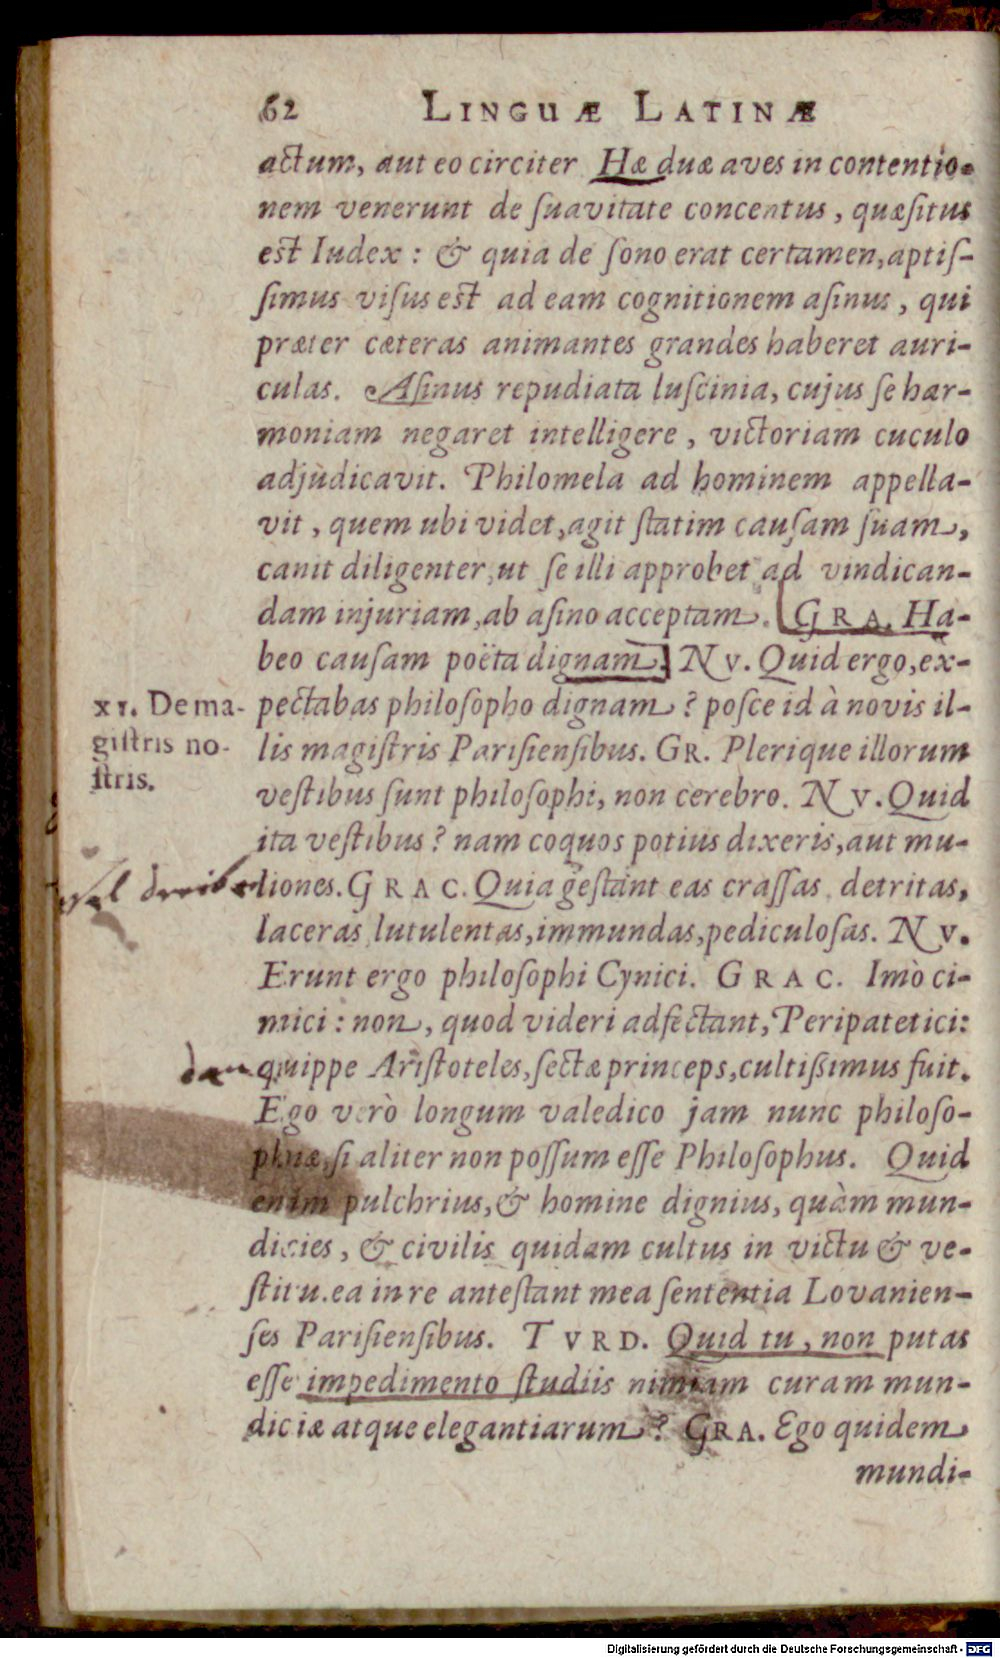 62 LINGUÆ LATINÆ
actum, aut eo circiter Hæ duæ aves in contentio-
nem venerunt de ſuavitate concentus, quæſitus
est Iudex: & quia de ſono erat certamen, aptiſ-
ſimus viſus est ad eam cognitionem aſinus, qui
præter cæteras animantes grandes haberet auri-
culas. Aſinus repudiata luſcinia, cujus ſe har-
moniam negaret intelligere, victoriam cuculo
adjudicavit. Philomela ad hominem appella-
vit, quem ubi videt, agit ſtatim cauſam ſuam,
canit diligenter, ut ſe illi approbet ad vindican-
dam injuriam, ab aſino acceptam. GRA. Ha-
beo cauſam poëta dignam. NV. Quid ergo, ex-
XI. De ma-
giſtris no-
ſtris.
pectabas philoſopho dignam? poſce id à novis il-
lis magiſtris Pariſienſibus. GR. Plerique illorum
veſtibus ſunt philoſophi, non cerebro. NV. Quid
ita veſtibus? nam coquos potius dixeris, aut mu-
liones. GRAC. Quia geſtant eas craſſas, detritas,
laceras, lutulentas, immundas, pediculoſas. NV.
Erunt ergo philoſophi Cynici. GRAC. Imò ci-
mici: non, quod videri adfectant, Peripatetici:
quippe Ariſtoteles, ſectæ princeps, cultiſſimus fuit.
Ego verò longum valedico jam nunc philoſo-
phiæ, ſi aliter non poſſum eſſe Philoſophus. Quid
enim pulchrius, & homine dignius, quàm mun-
dicies, & civilis quidam cultus in victu & ve-
ſtitu. ea in re anteſtant mea ſententia Lovanien-
ſes Pariſienſibus. TVRD. Quid tu, non putas
eſſe impedimento ſtudiis nimiam curam mun-
diciæ atque elegantiarum? GRA. Ego quidem
mundi-
Digitalisierung gefördert durch die Deutsche Forschungsgemeinschaft - DFG